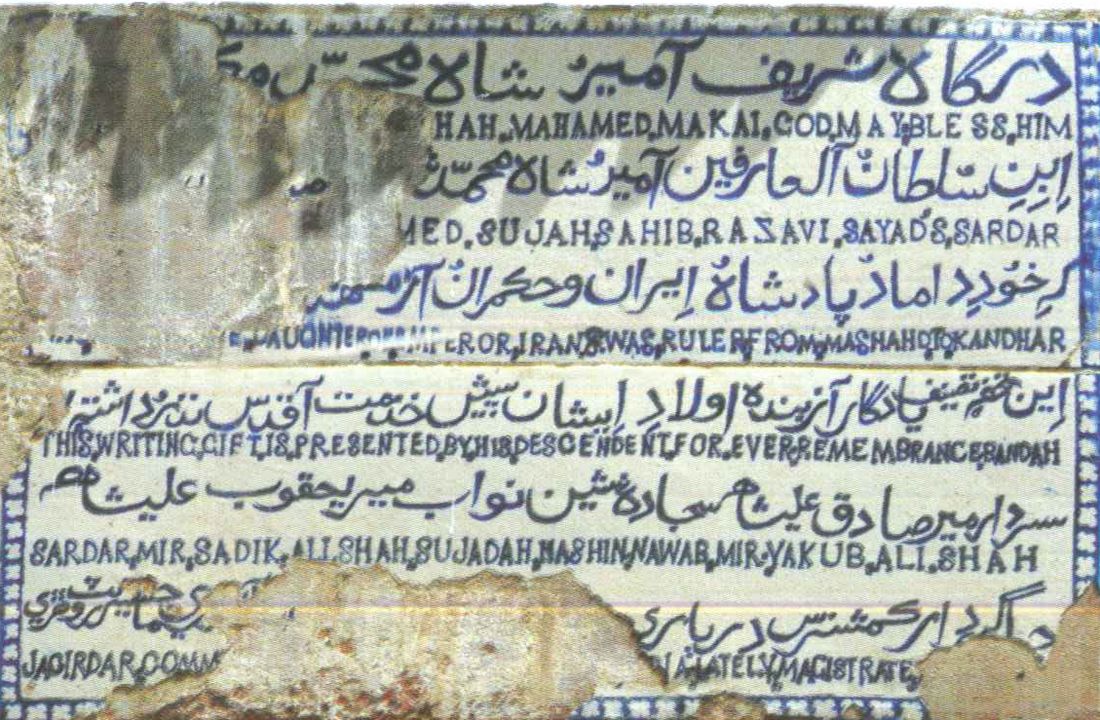 درگاه شریف آمیر شاه محمّد
HAH.MAHAMED.MAKAI.GOD.MAY.BLESS.HIM
اِبنِ سُلطانُ آلعارفین آمیرُشاه محمّدُ
MED.SUJAH.SAHIB.RAZAVI.SAYAD'S.SARDAR
کِ خُودِ داماد پادشاهُ اِیران وحکمرانُ آز
EROR.IRAN.&.WAS.RULER.FROM.MASHAHD.TO.KANDHAR
اِین یادگار آزبنده اولادِ اِیشان پیش خدمت آقدس
THIS.WRITING.GIFT.IS.PRESENTED.BY.HIS.DESCENDENT.FOR.EVER.REMEMBRANCE.BANDAH
سردار میر صادق علیشاه سجاده نشین نواب میر یعقوب علیشاه
SARDAR.MIR.SADIK.ALI.SHAH.SUJADAH.NASHIN.NAWAB.MIR.YAKUB.ALI.SHAH
گردار کمشنرس درباری
JAGIRDAR.COMM LATELY.MAGISTRATE.